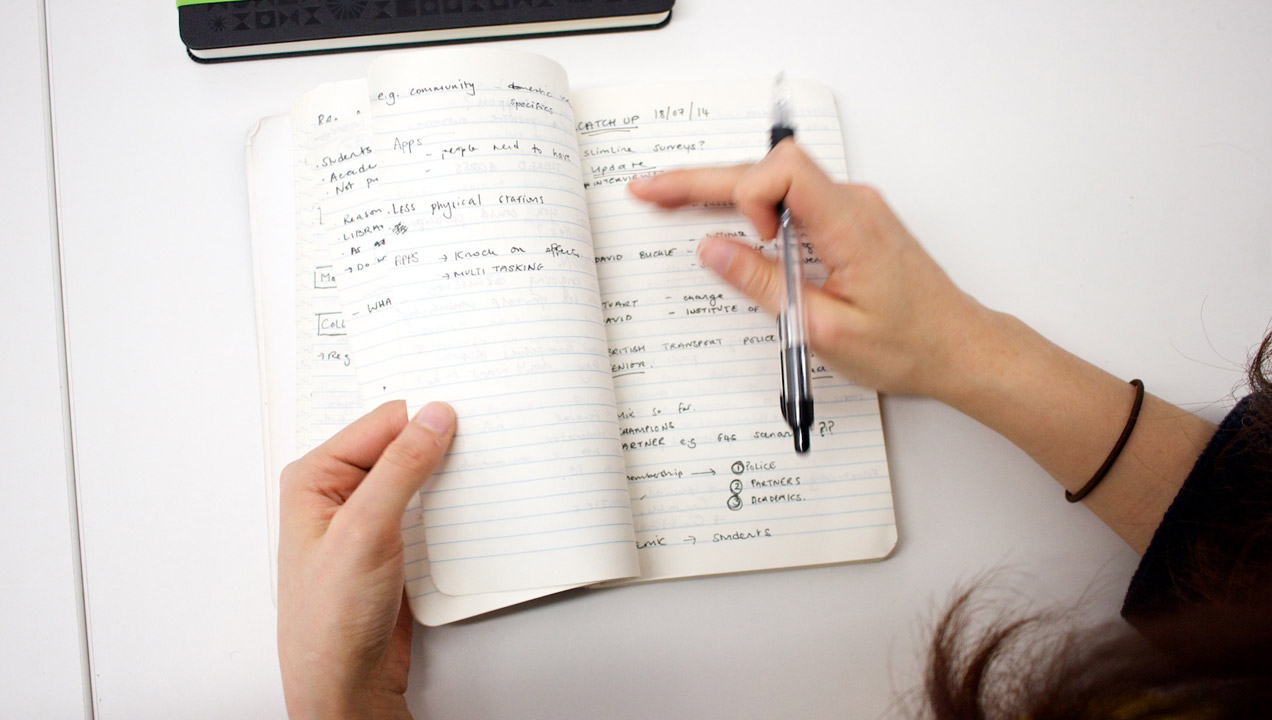 e.g. community - domestic
specifics
Re.
. Students Apps - people need to have
. Acade
. Not pu
Reason . LESS physical stations
. LIBRA
. AS
→ Do APPS → Knock on effects
→ MULTI TASKING
Mo
- WHA
Coll
→ Reg
CATCH UP 18/07/14
Slimline surveys?
Update
* INTERVIEWS
DAVID BUCKLE -
TUART - change
AVID - INSTITUTE OF
BRITISH TRANSPORT POLICE
ENIOR.
Mix so far.
CHAMPIONS
ARTNER e.g G4S scenar ??
membership → ① POLICE
② PARTNERS
③ ACADEMICS.
emic → students